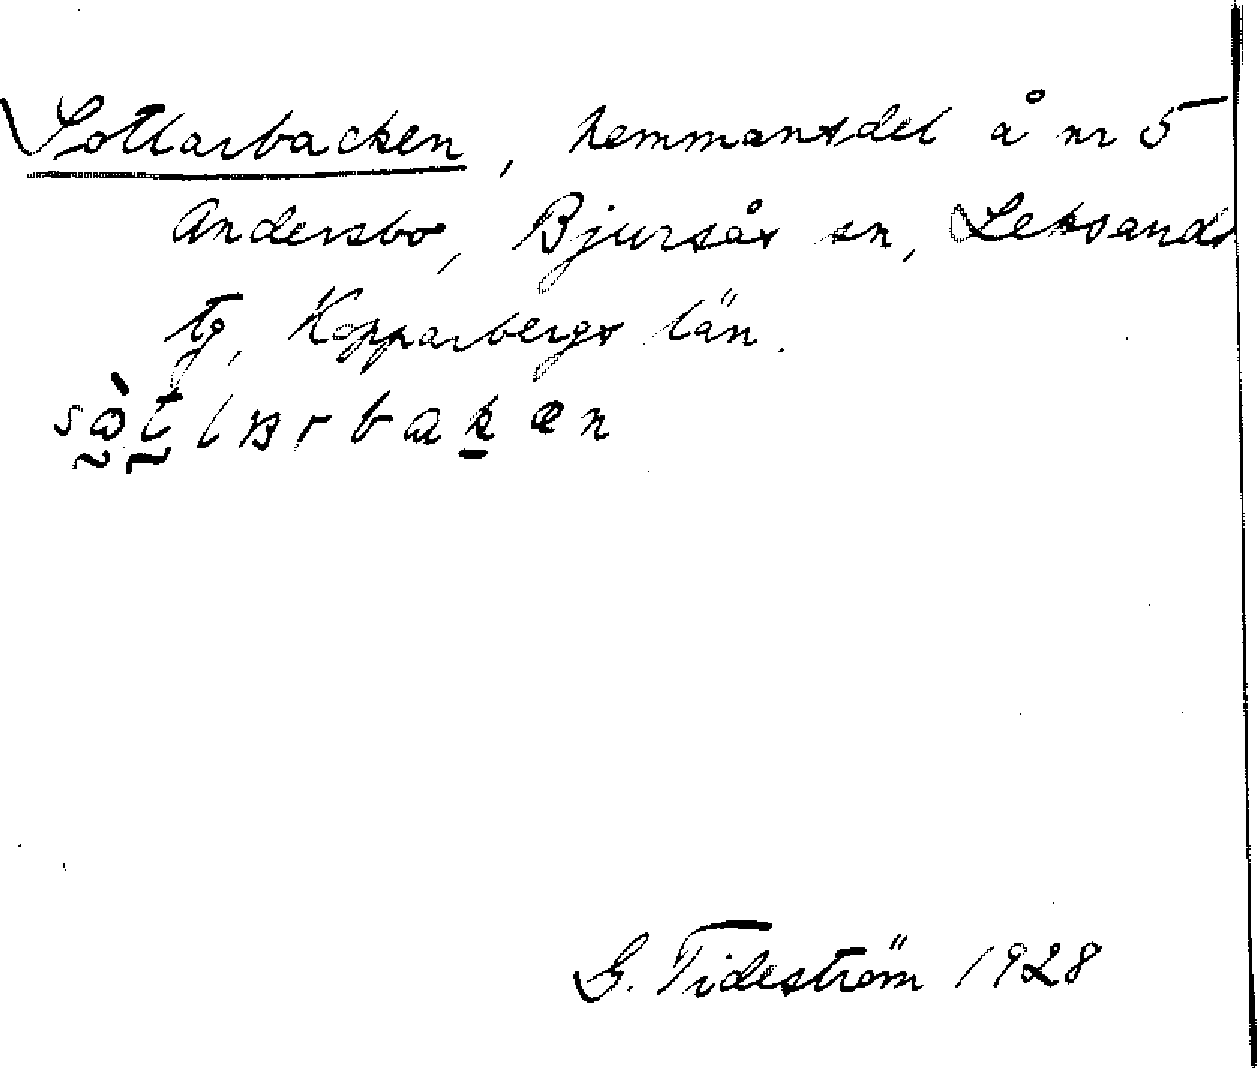 Sotlarbacken, hemmansdel å nr 5
Andersbo, Bjursås sn, Leksands
tg, Kopparbergs län.
G. Tideström 1928